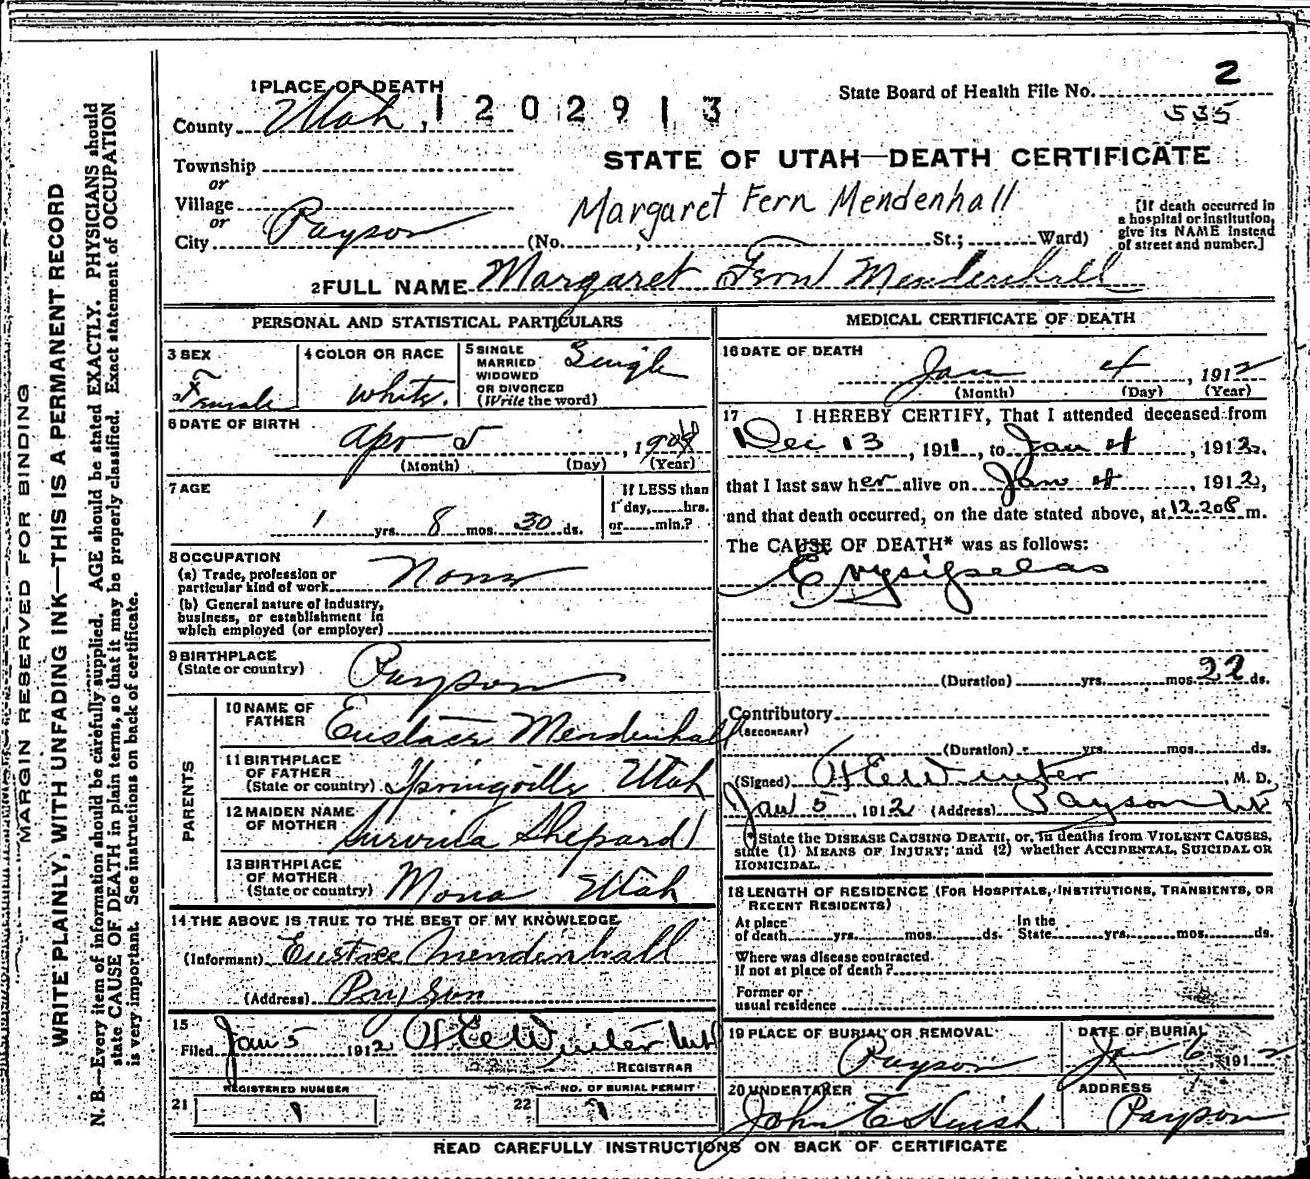 2
1 PLACE OF DEATH
State Board of Health File No.
535
County Utah, 1202913
STATE OF UTAH—DEATH CERTIFICATE
Township
or
Village
or
City Payson (No. , St.; Ward)
Margaret Fern Mendenhall
[If death occurred in
a hospital or institution,
give its NAME instead
of street and number.]
2 FULL NAME Margaret Fern Mendenhall
PERSONAL AND STATISTICAL PARTICULARS
3 SEX
Female
4 COLOR OR RACE
White.
5 SINGLE
MARRIED
WIDOWED
OR DIVORCED
(Write the word)
Single
6 DATE OF BIRTH
Apr 5 , 19
(Month) (Day) (Year)
7 AGE
1 yrs. 8 mos. 30 ds.
If LESS than
1 day, hrs.
or min.?
8 OCCUPATION
(a) Trade, profession or
particular kind of work None
(b) General nature of industry,
business, or establishment in
which employed (or employer)
9 BIRTHPLACE
(State or country) Payson
PARENTS
10 NAME OF
FATHER Eustace Mendenhall
11 BIRTHPLACE
OF FATHER
(State or country) Springville Utah
12 MAIDEN NAME
OF MOTHER Shepard
13 BIRTHPLACE
OF MOTHER
(State or country) Mona Utah
14 THE ABOVE IS TRUE TO THE BEST OF MY KNOWLEDGE
(Informant) Eustace Mendenhall
(Address) Payson
15
Filed Jan 5 1912
REGISTRAR
REGISTERED NUMBER
21 1
NO. OF BURIAL PERMIT
22
MEDICAL CERTIFICATE OF DEATH
16 DATE OF DEATH
Jan 4 , 1912
(Month) (Day) (Year)
17 I HEREBY CERTIFY, That I attended deceased from
Dec 13 , 1911 , to Jan 4 , 1912,
that I last saw her alive on Jan 4 , 1912,
and that death occurred, on the date stated above, at 12.20P m.
The CAUSE OF DEATH* was as follows:
Erysipelas
(Duration) yrs. mos. 22 ds.
Contributory
(SECONDARY)
(Duration) yrs. mos. ds.
(Signed) , M. D.
Jan 5 , 1912 (Address) Payson Ut
*State the DISEASE CAUSING DEATH, or, in deaths from VIOLENT CAUSES,
state (1) MEANS OF INJURY; and (2) whether ACCIDENTAL, SUICIDAL OR
HOMICIDAL.
18 LENGTH OF RESIDENCE (FOR HOSPITALS, INSTITUTIONS, TRANSIENTS, OR
RECENT RESIDENTS)
At place
of death yrs. mos. ds.
In the
State yrs. mos. ds.
Where was disease contracted.
if not at place of death?
Former or
usual residence
19 PLACE OF BURIAL OR REMOVAL
Payson
DATE OF BURIAL
Jan 6 , 1912
20 UNDERTAKER
John E Huish
ADDRESS
Payson
READ CAREFULLY INSTRUCTIONS ON BACK OF CERTIFICATE
MARGIN RESERVED FOR BINDING
WRITE PLAINLY, WITH UNFADING INK—THIS IS A PERMANENT RECORD
N. B.—Every item of information should be carefully supplied. AGE should be stated EXACTLY. PHYSICIANS should
state CAUSE OF DEATH in plain terms, so that it may be properly classified. Exact statement of OCCUPATION
is very important. See instructions on back of certificate.